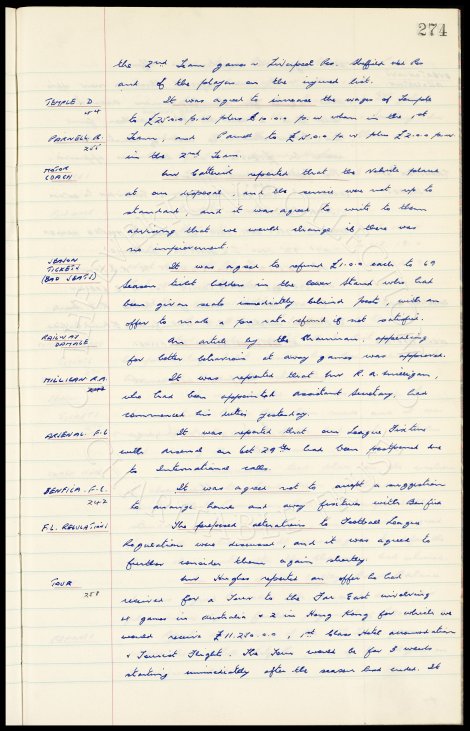 274
the 2nd Team games v Liverpool Res. Sheffield Wed Res
and of the players on the injured list.
TEMPLE. D.
It was agreed to increase the wages of Temple
to p.w plus £10.0.0 p.w when in the 1st
PARNELL. R.
255
Team, and Parnell to p.w plus £2.0.0 p.w
in the 2nd Team.
MOTOR
COACH
Mr Catterick reported that the vehicle placed
at our disposal, and the service was not up to
standard, and it was agreed to write to them
advising that we would change if there was
no improvement.
SEASON
TICKETS
(BAD SEATS)
It was agreed to refund £1.0.0 each to 69
Season ticket holders in the lower Stand who had
been given seats immediately behind posts, with an
offer to make a pro rata refund if not satisfied.
RAILWAY
DAMAGE
An article by the Chairman, appealing
for better behaviour at away games was approved.
MILLIGAN R.A.
It was reported that Mr R. A. Milligan,
who had been appointed Assistant Secretary, had
commenced his duties yesterday.
ARSENAL. F.C
It was reported that our League Fixture
with Arsenal on Oct 29th had been postponed due
to International calls.
BENFICA. F.C.
242
It was agreed not to accept a suggestion
to arrange home and away fixtures with Benfica
F.L. REGULATIONS
The proposed alterations to Football League
Regulations were discussed, and it was agreed to
further consider them again shortly.
TOUR
258
Mr Hughes reported an offer he had
received for a Tour to the Far East involving
games in Australia & 2 in Hong Kong for which we
would receive £11.250.0.0, 1st Class Hotel accommodation
& Tourist Flights. The Tour would be for 5 weeks
starting immediately after the season had ended. It